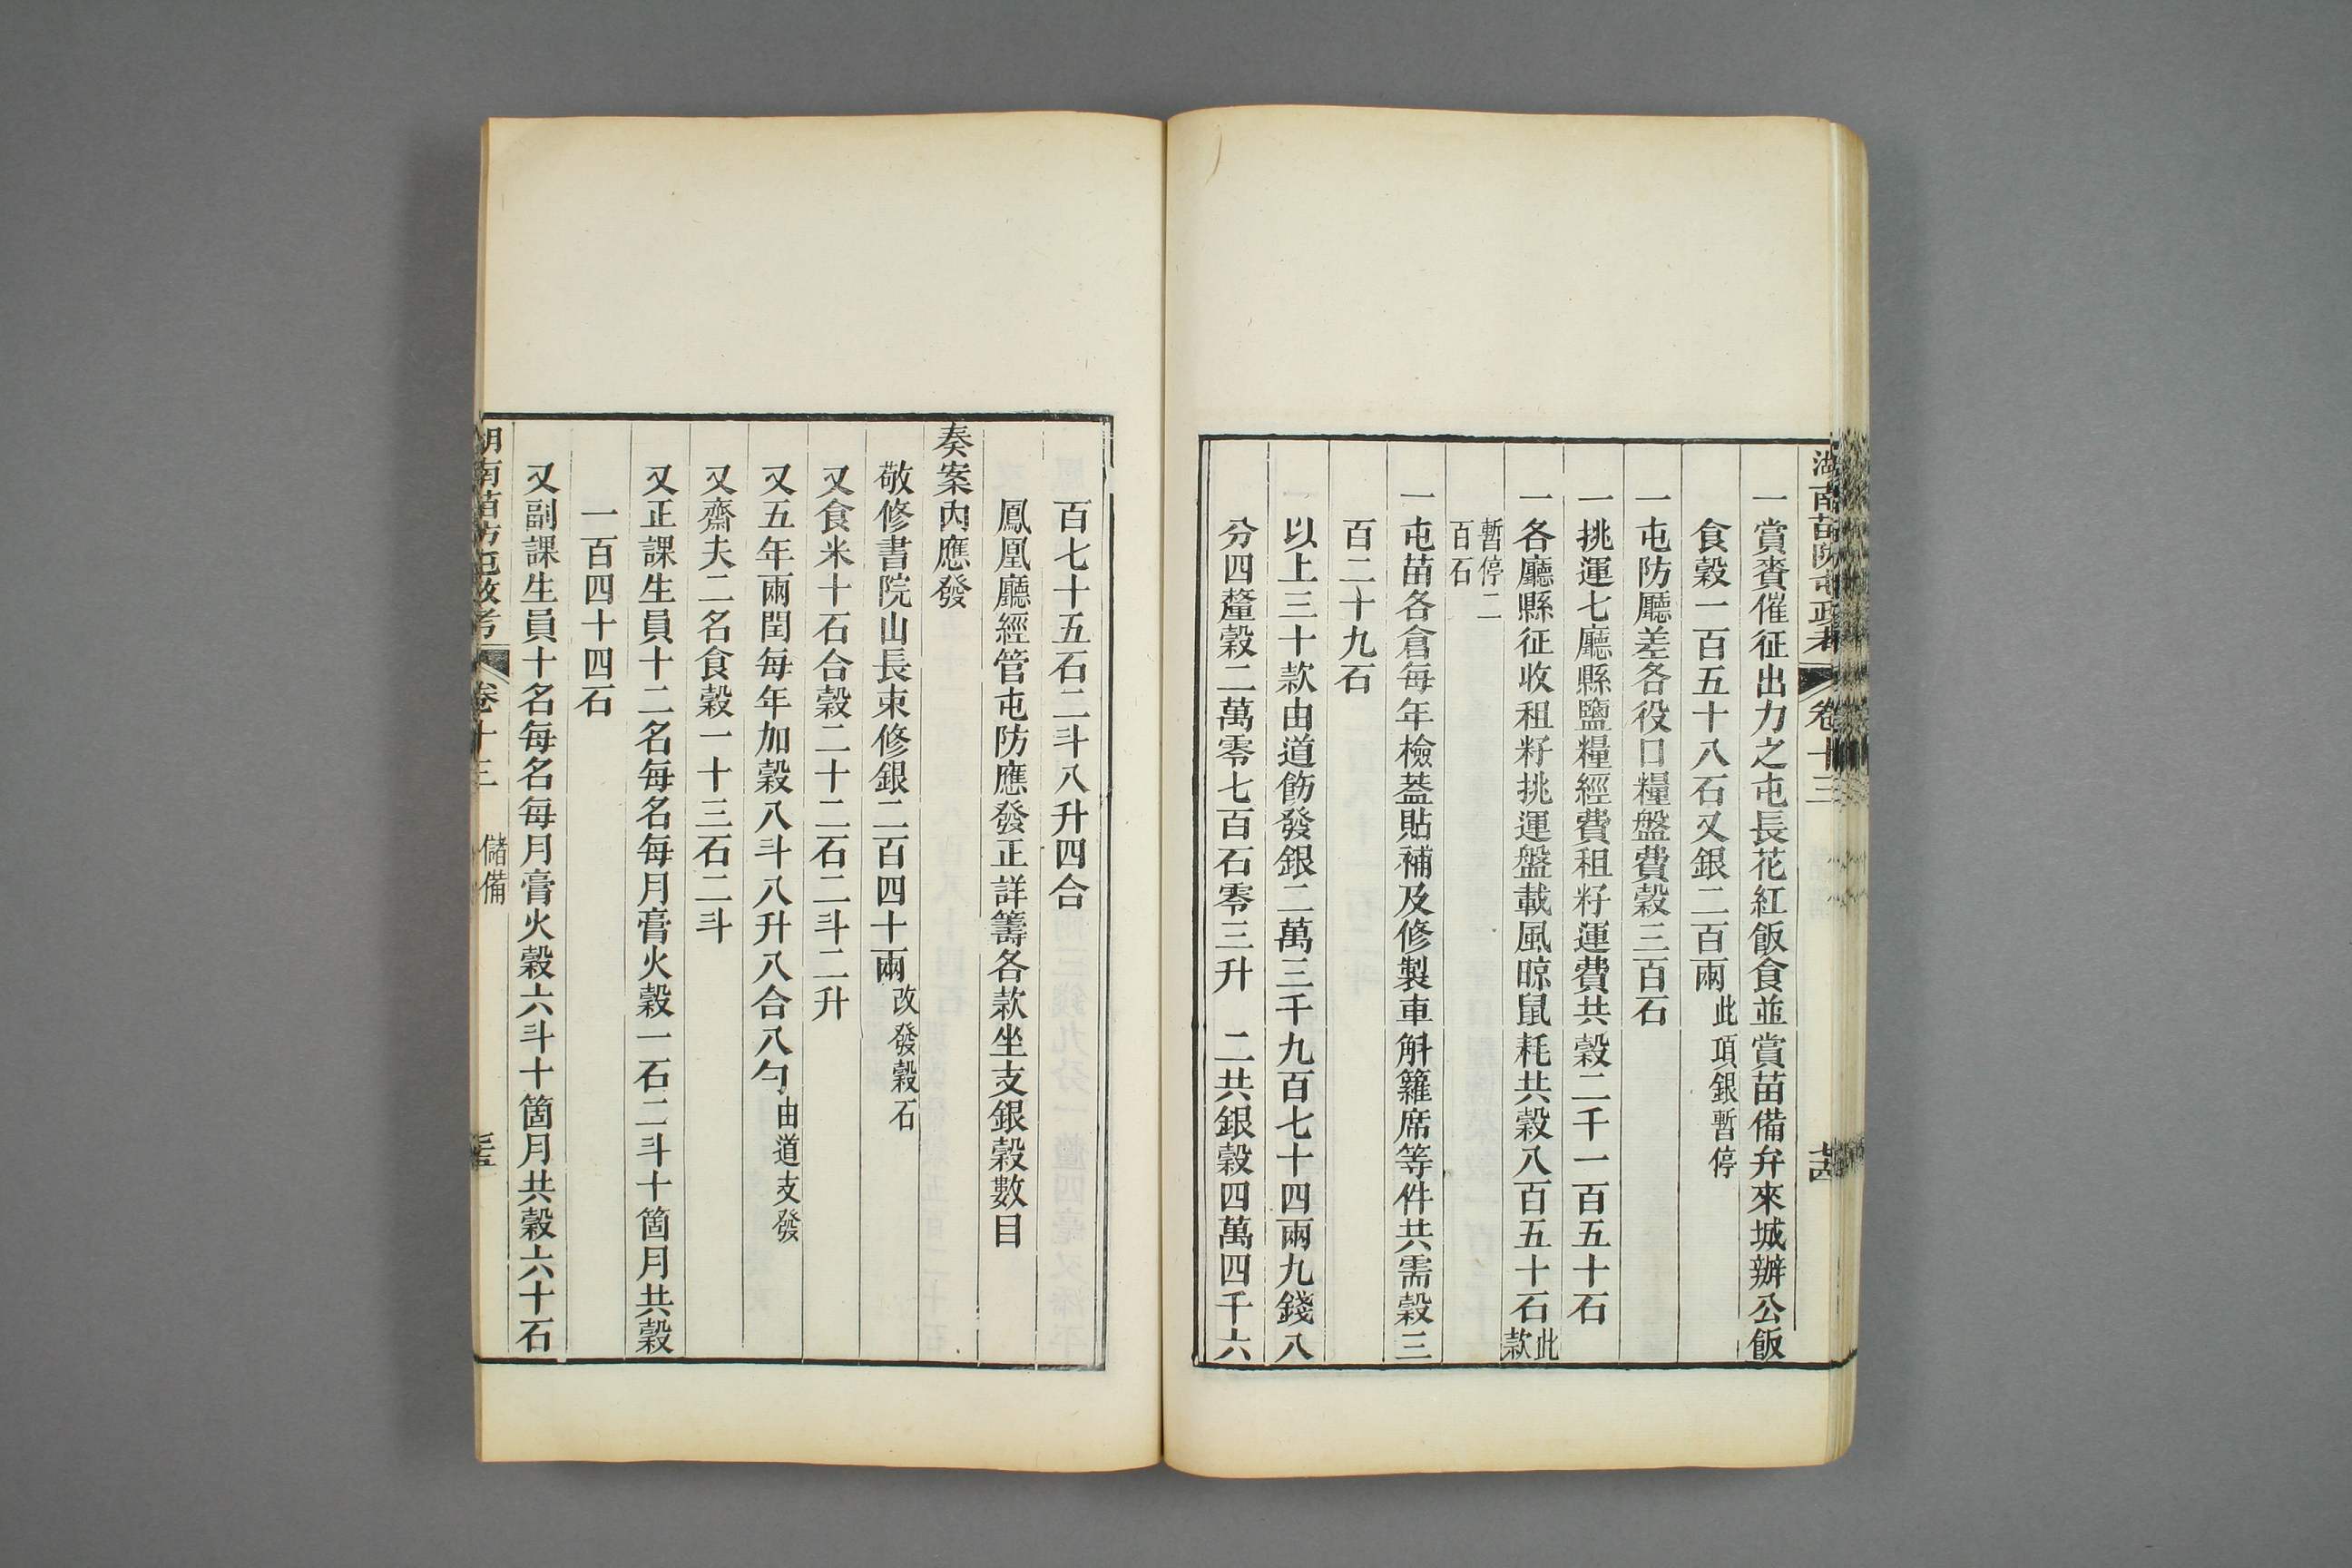 湖南苗防屯政考 卷十三
一賞賚催征出力之屯長花紅飯食並賞苗備弁來城辦公飯
食穀一百五十八石又銀二百兩此項銀暫停
一屯防廳差各役口糧盤費穀三百石
一挑運七廳縣鹽糧經費租籽運費共穀二千一百五十石
一各廳縣征收租籽挑運盤載風晾鼠耗共穀八百五十石此款
暫停二百石
一屯苗各倉每年檢蓋貼補及修製車斛籮席等件共需穀三
百二十九石
以上三十款由道飭發銀二萬三千九百七十四兩九錢八
分四釐穀二萬零七百石零三升 二共銀穀四萬四千六
百七十五石二斗八升四合
鳳凰廳經管屯防應發正詳籌各款坐支銀穀數目
奏案內應發
敬修書院山長束修銀二百四十兩改發穀石
又食米十石合穀二十二石二斗二升
又五年兩閏每年加穀八斗八升八合八勺由道支發
又齋夫二名食穀一十三石二斗
又正課生員十二名每名每月膏火穀一石二斗十箇月共穀
一百四十四石
又副課生員十名每名每月膏火穀六斗十箇月共穀六十石
湖南苗防屯政考 卷十三 儲備